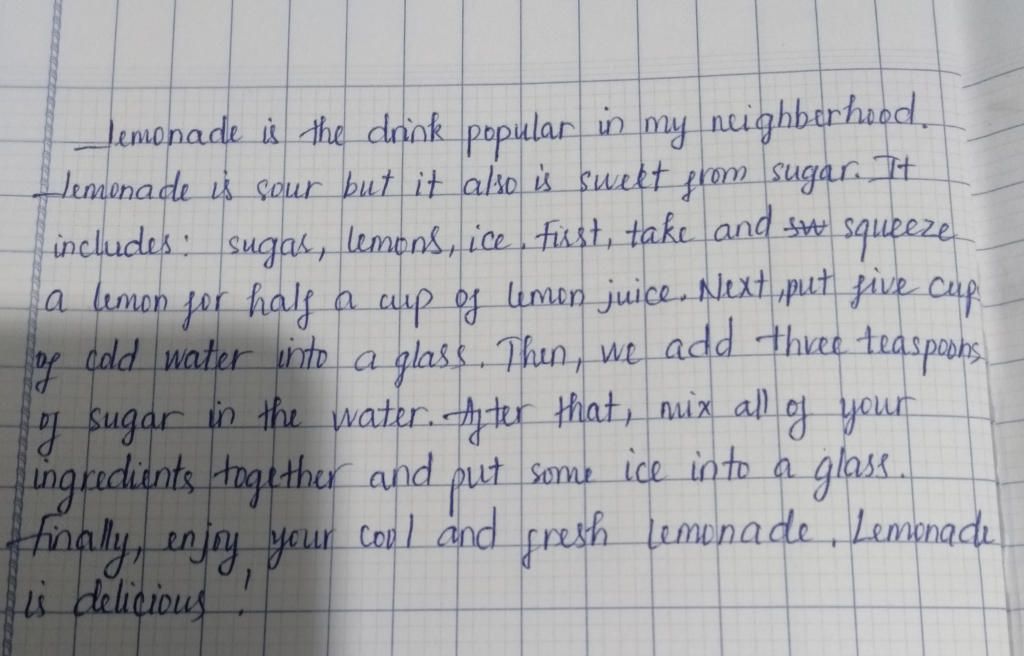 Lemonade is the drink popular in my neighborhood.
Lemonade is sour but it also is sweet from sugar. It
includes: sugar, lemons, ice. First, take and squeeze
a lemon for half a cup of lemon juice. Next, put five cup
of cold water into a glass. Then, we add three teaspoons
of sugar in the water. After that, mix all of your
ingredients together and put some ice into a glass.
Finally, enjoy your cool and fresh lemonade. Lemonade
is delicious!